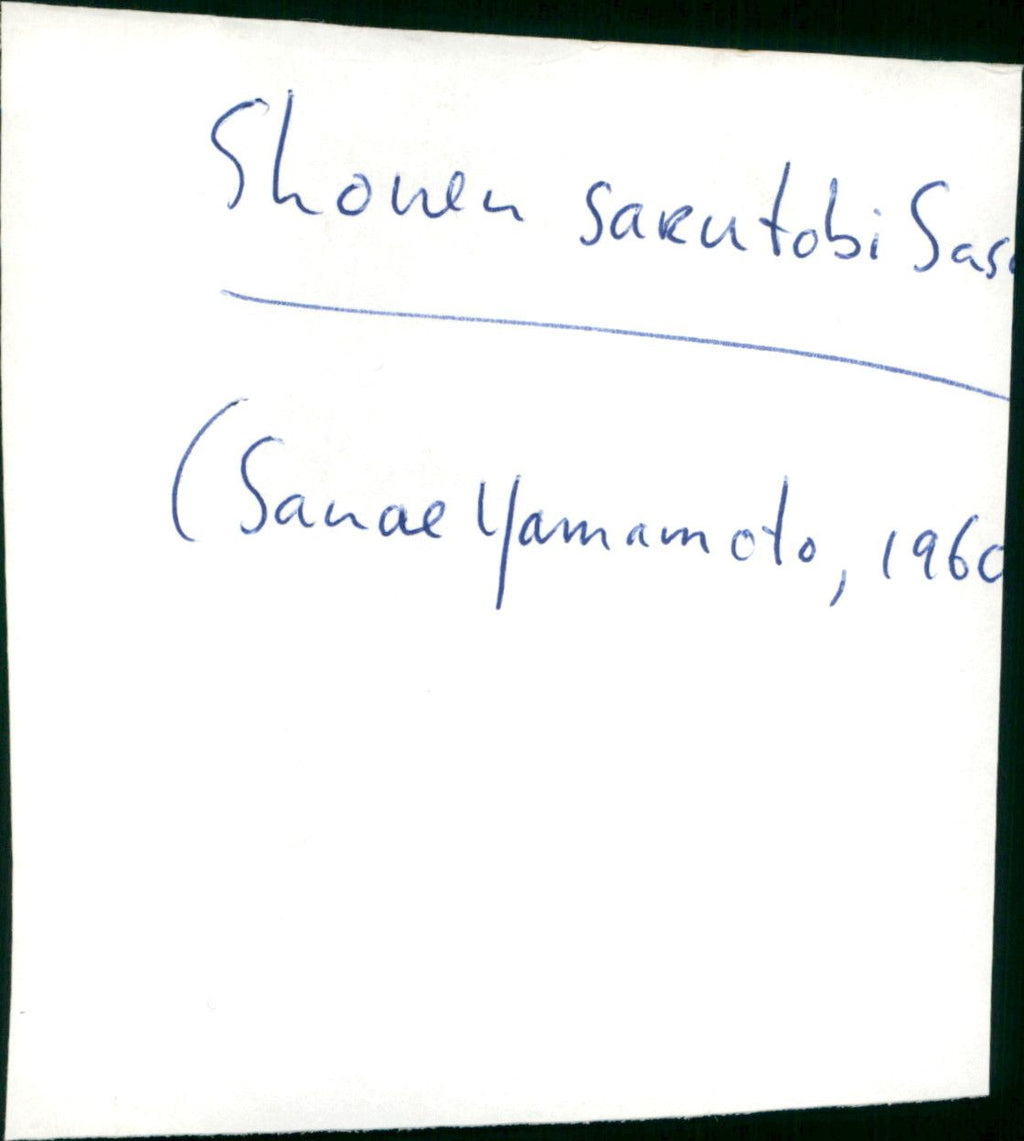 Shonen Sarutobi Sas
(Sanae Yamamoto, 1960